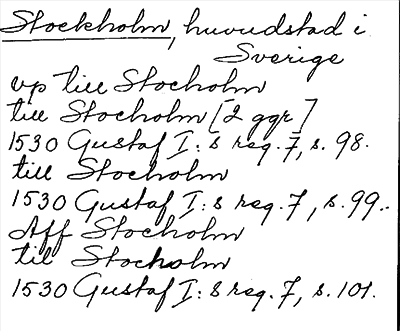 Stockholm, huvudstad i
Sverige
vp till Stocholm
till Stocholm [2 ggr]
1530 Gustaf I:s reg. 7, s. 98.
till Stocholm
1530 Gustaf I:s reg. 7, s. 99.
Aff Stocholm
til Stocholm
1530 Gustaf I:s reg. 7, s. 101.